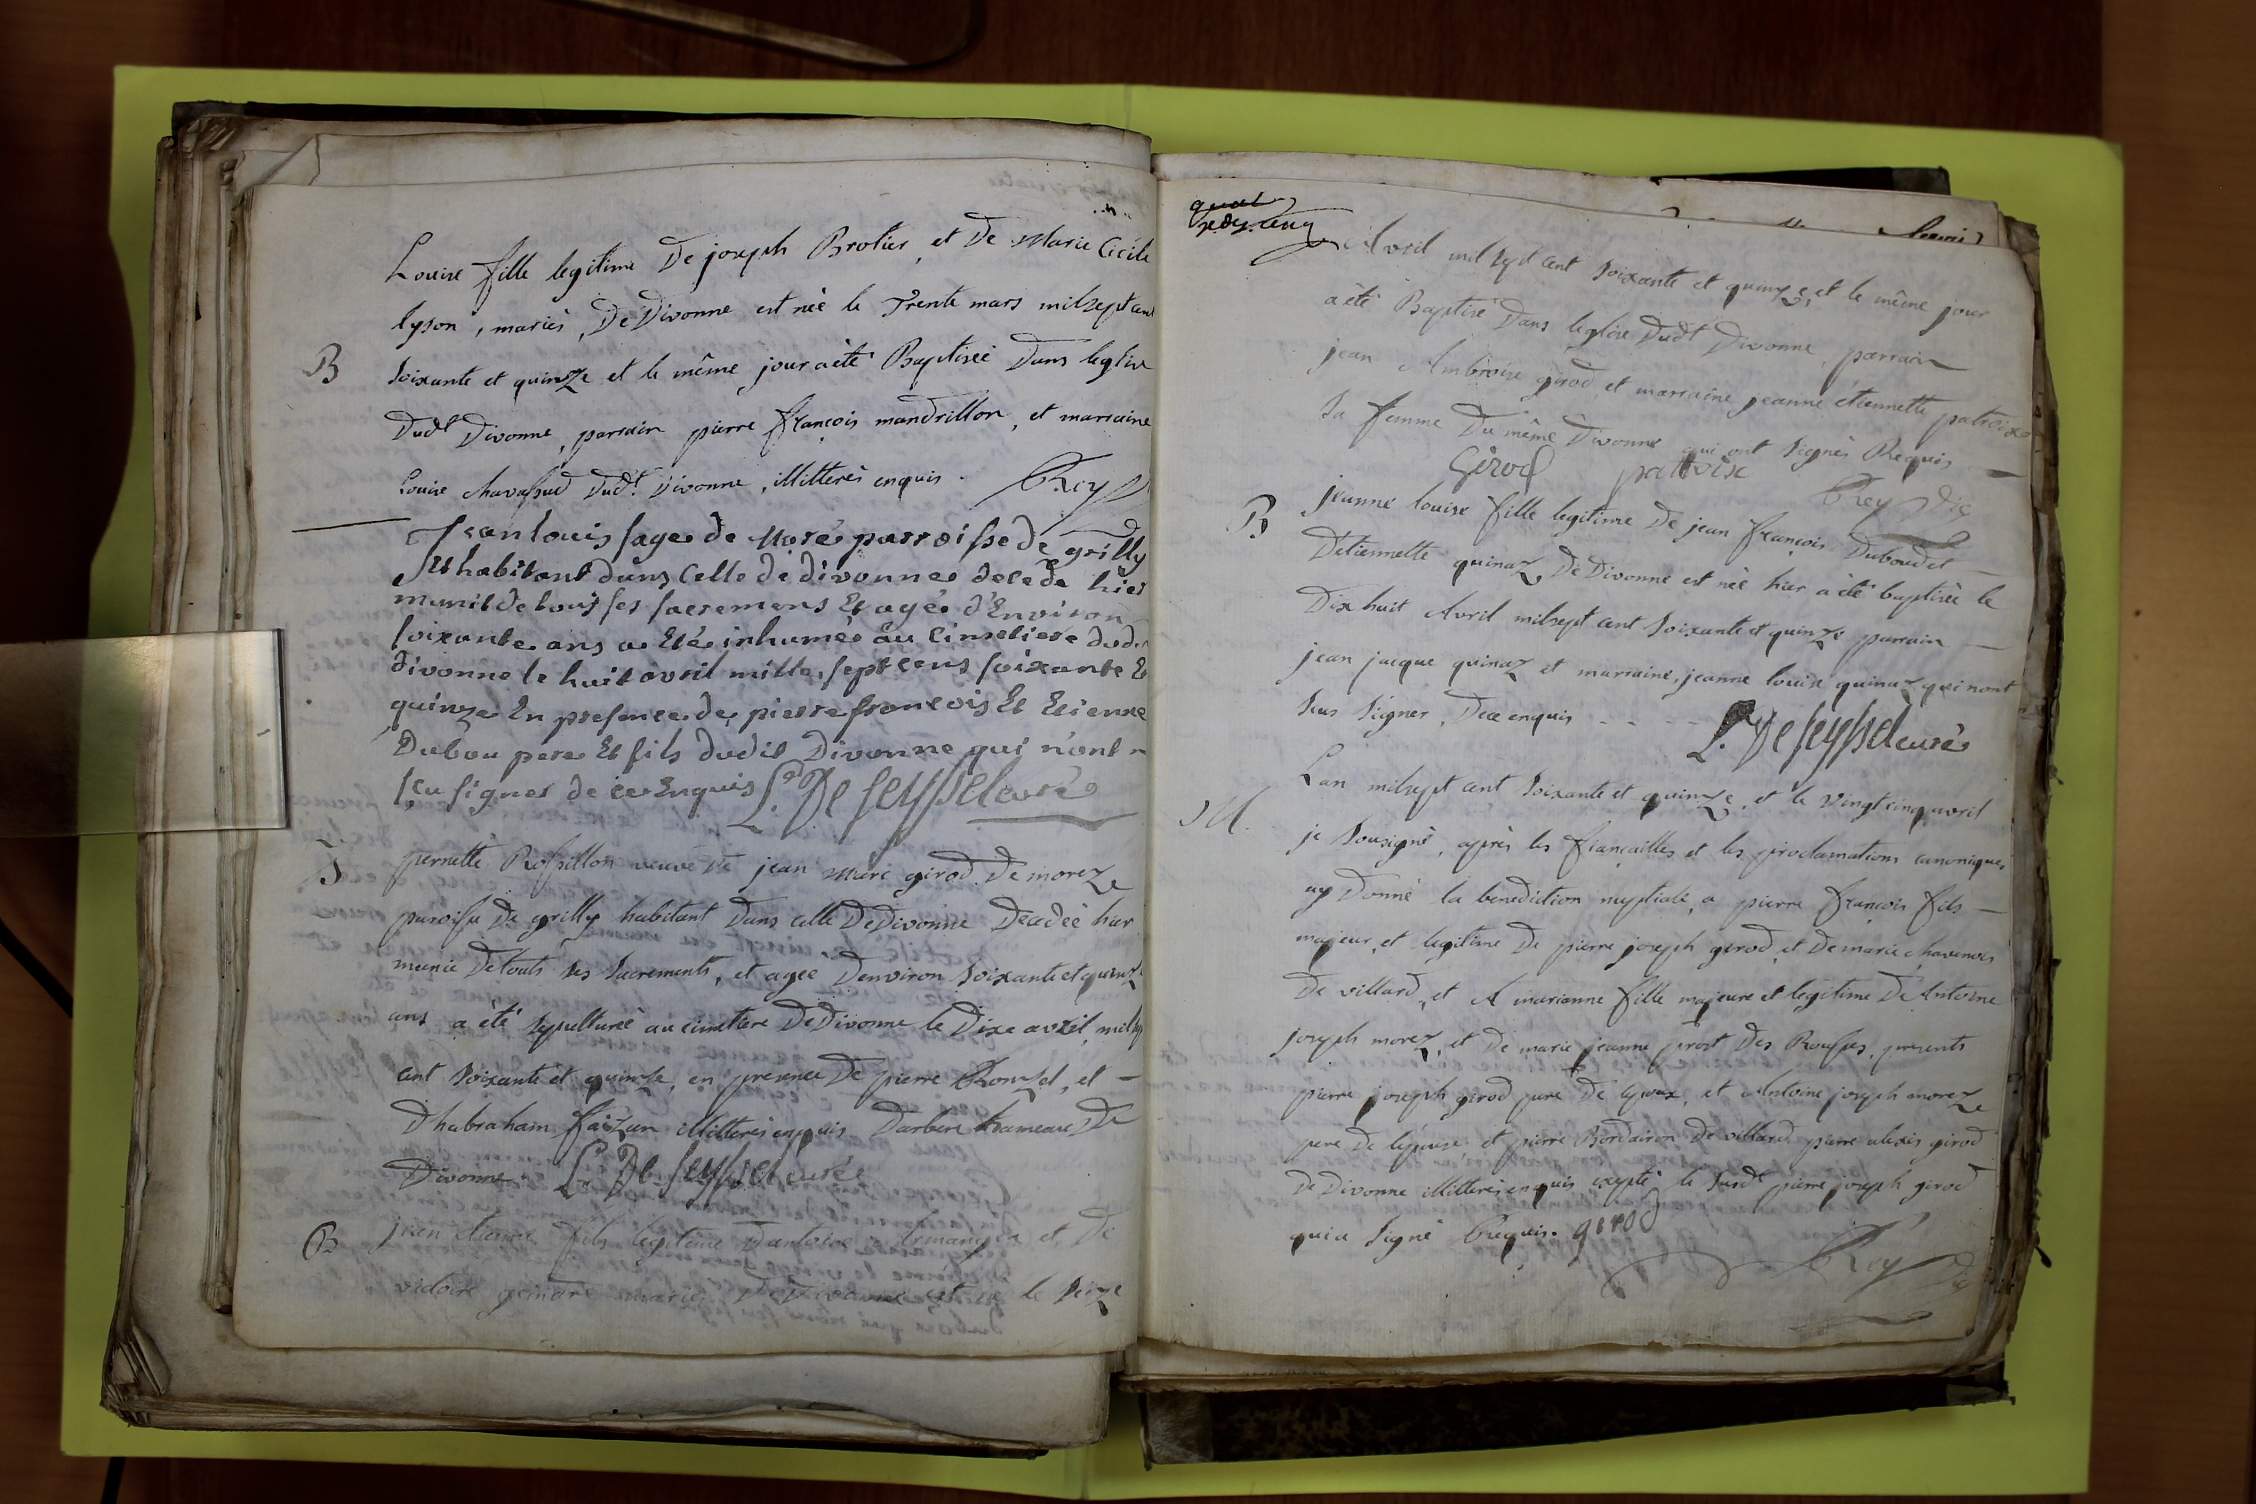 Louise fille legitime De joseph Brolier, et De Marie Cécile
lyson, mariés, De Divonne est née le Trente mars milsept cent
B
soixante et quinze et le même jour a été Baptiseé Dans leglise
Dudt Divonne, parrain pierre françois mandrillon, et marraine
Louise chavassud Dudt. Divonne, illitterés enquis. Rey
Jean louis sage de Moré parroisse de grilly
Et habitant dans Celle de divonne decede hier
munit de tous ses sacremens Et agé d'Environ
soixante ans a Eté inhumé au Cimetiere dud.
divonne le huit avril mille, sept cens soixante Et
quinze En presence de pierre françois Et Etienne
Dubou pere Et fils dudit Divonne qui n'ont
sçu signer de ce Enquis L. De seyssel curé
S
pernette Rossillon veuve de jean Marc girod De morez
paroisse De grilly habitant Dans celle De Divonne Decedeé hier
munie De touts ses sacrements, et ageé Denviron soixante et quinze
ans a été sepultureé au cimetiere De Divonne le Dixe avril, milsept
cent soixante et quinze, en presence De pierre Rouzet, et —
Dhabraham faizan illitterés enquis Darbere hameau De
Divonne. L. De seyssel curé
B
jean etienne fils legitime Dantoine Armangea et De
victoire gendre mariés De Divonne est né le seize
quat
Avril mil sept cent soixante et quinze, et le même jour
a été Baptisé Dans leglise Dudt Divonne, parrain
jean Ambroise girod, et marraine jeanne étiennette patroix
sa femme Du même Divonne qui ont signés Requis —
Girod patroix Rey Vic
B
jeanne louise fille legitime De jean françois Duboudet —
Detiennette quinaz, De Divonne est née hier a été baptiseé le
Dix huit Avril milsept cent soixante et quinze parrain —
jean jacque quinaz et marraine, jeanne louise quinaz qui nont
sceus signer, De ce enquis - - - - L. De seyssel curé
Lan milsept cent soixante et quinze, et le vingt cinq avril
M.
je sousigné, après les fiançailles et les proclamations canoniques,
ay Donné la benediction nuptiale, a pierre françois fils —
majeur, et legitime De pierre joseph girod, et De marie chavenois
De villard, et A marianne fille majeure et legitime De Antoine
joseph morez, et De marie jeanne prost Des Rousses, presents
pierre joseph girod pere De lepoux, et Antoine joseph morez
pere De lepouse et pierre Bordairon De villard pierre alexis girod
De Divonne illitterés enquis, excepté le susdt pierre joseph girod
qui a signé Enquis. girod
Rey Vic